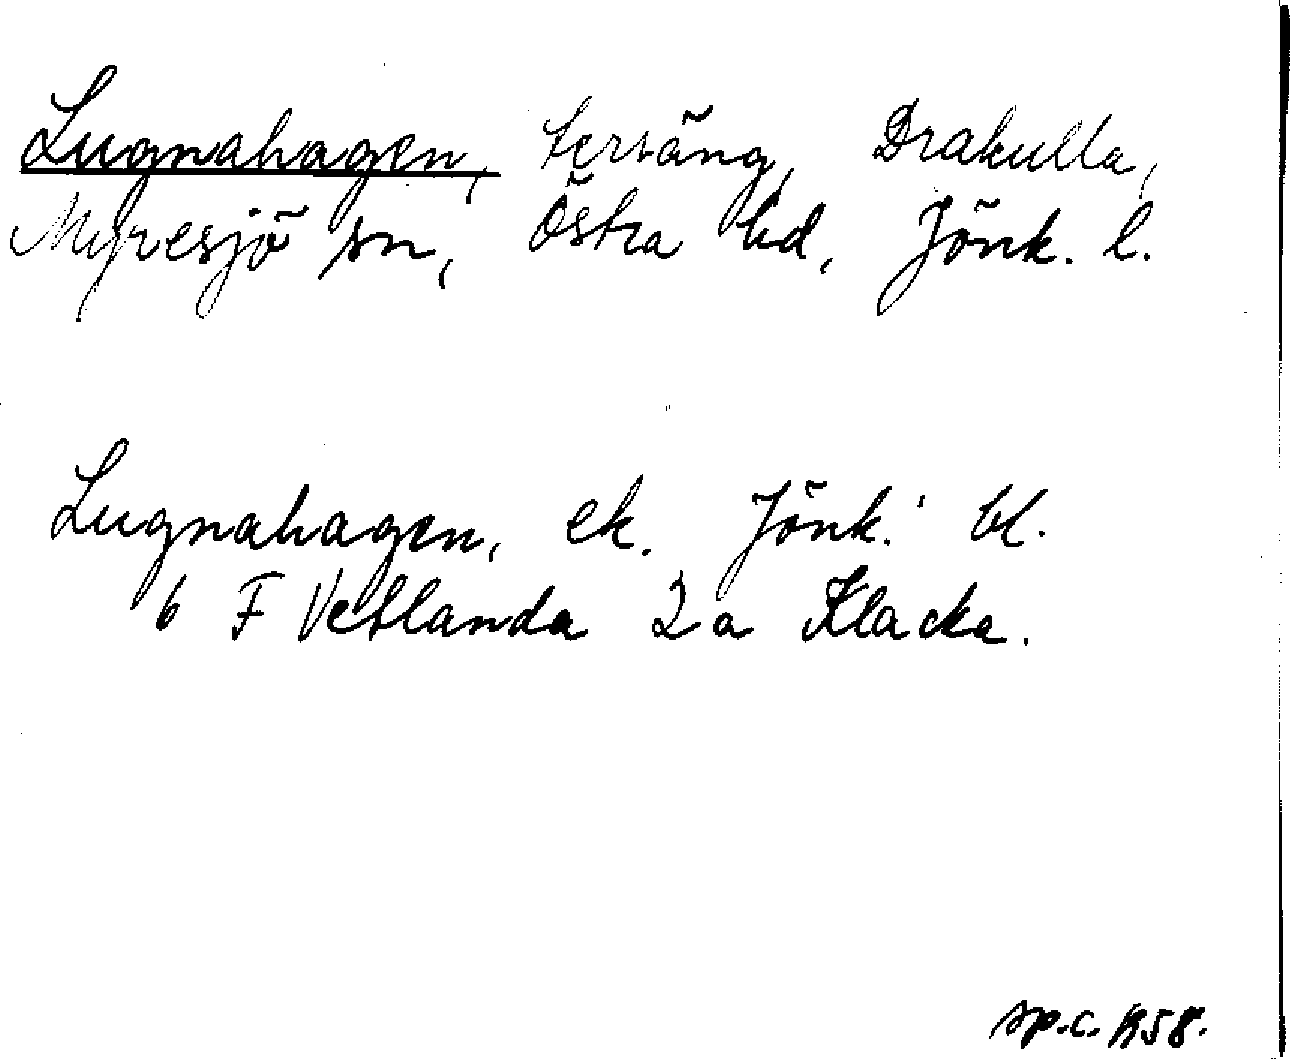 Lugnahagen, tersäng, Drakulla,
Myresjö sn, Östra hd, Jönk. l.
Lugnahagen, ek. Jönk. bl.
6 F Vetlanda 2a Klacka.
sp.c. 1958.